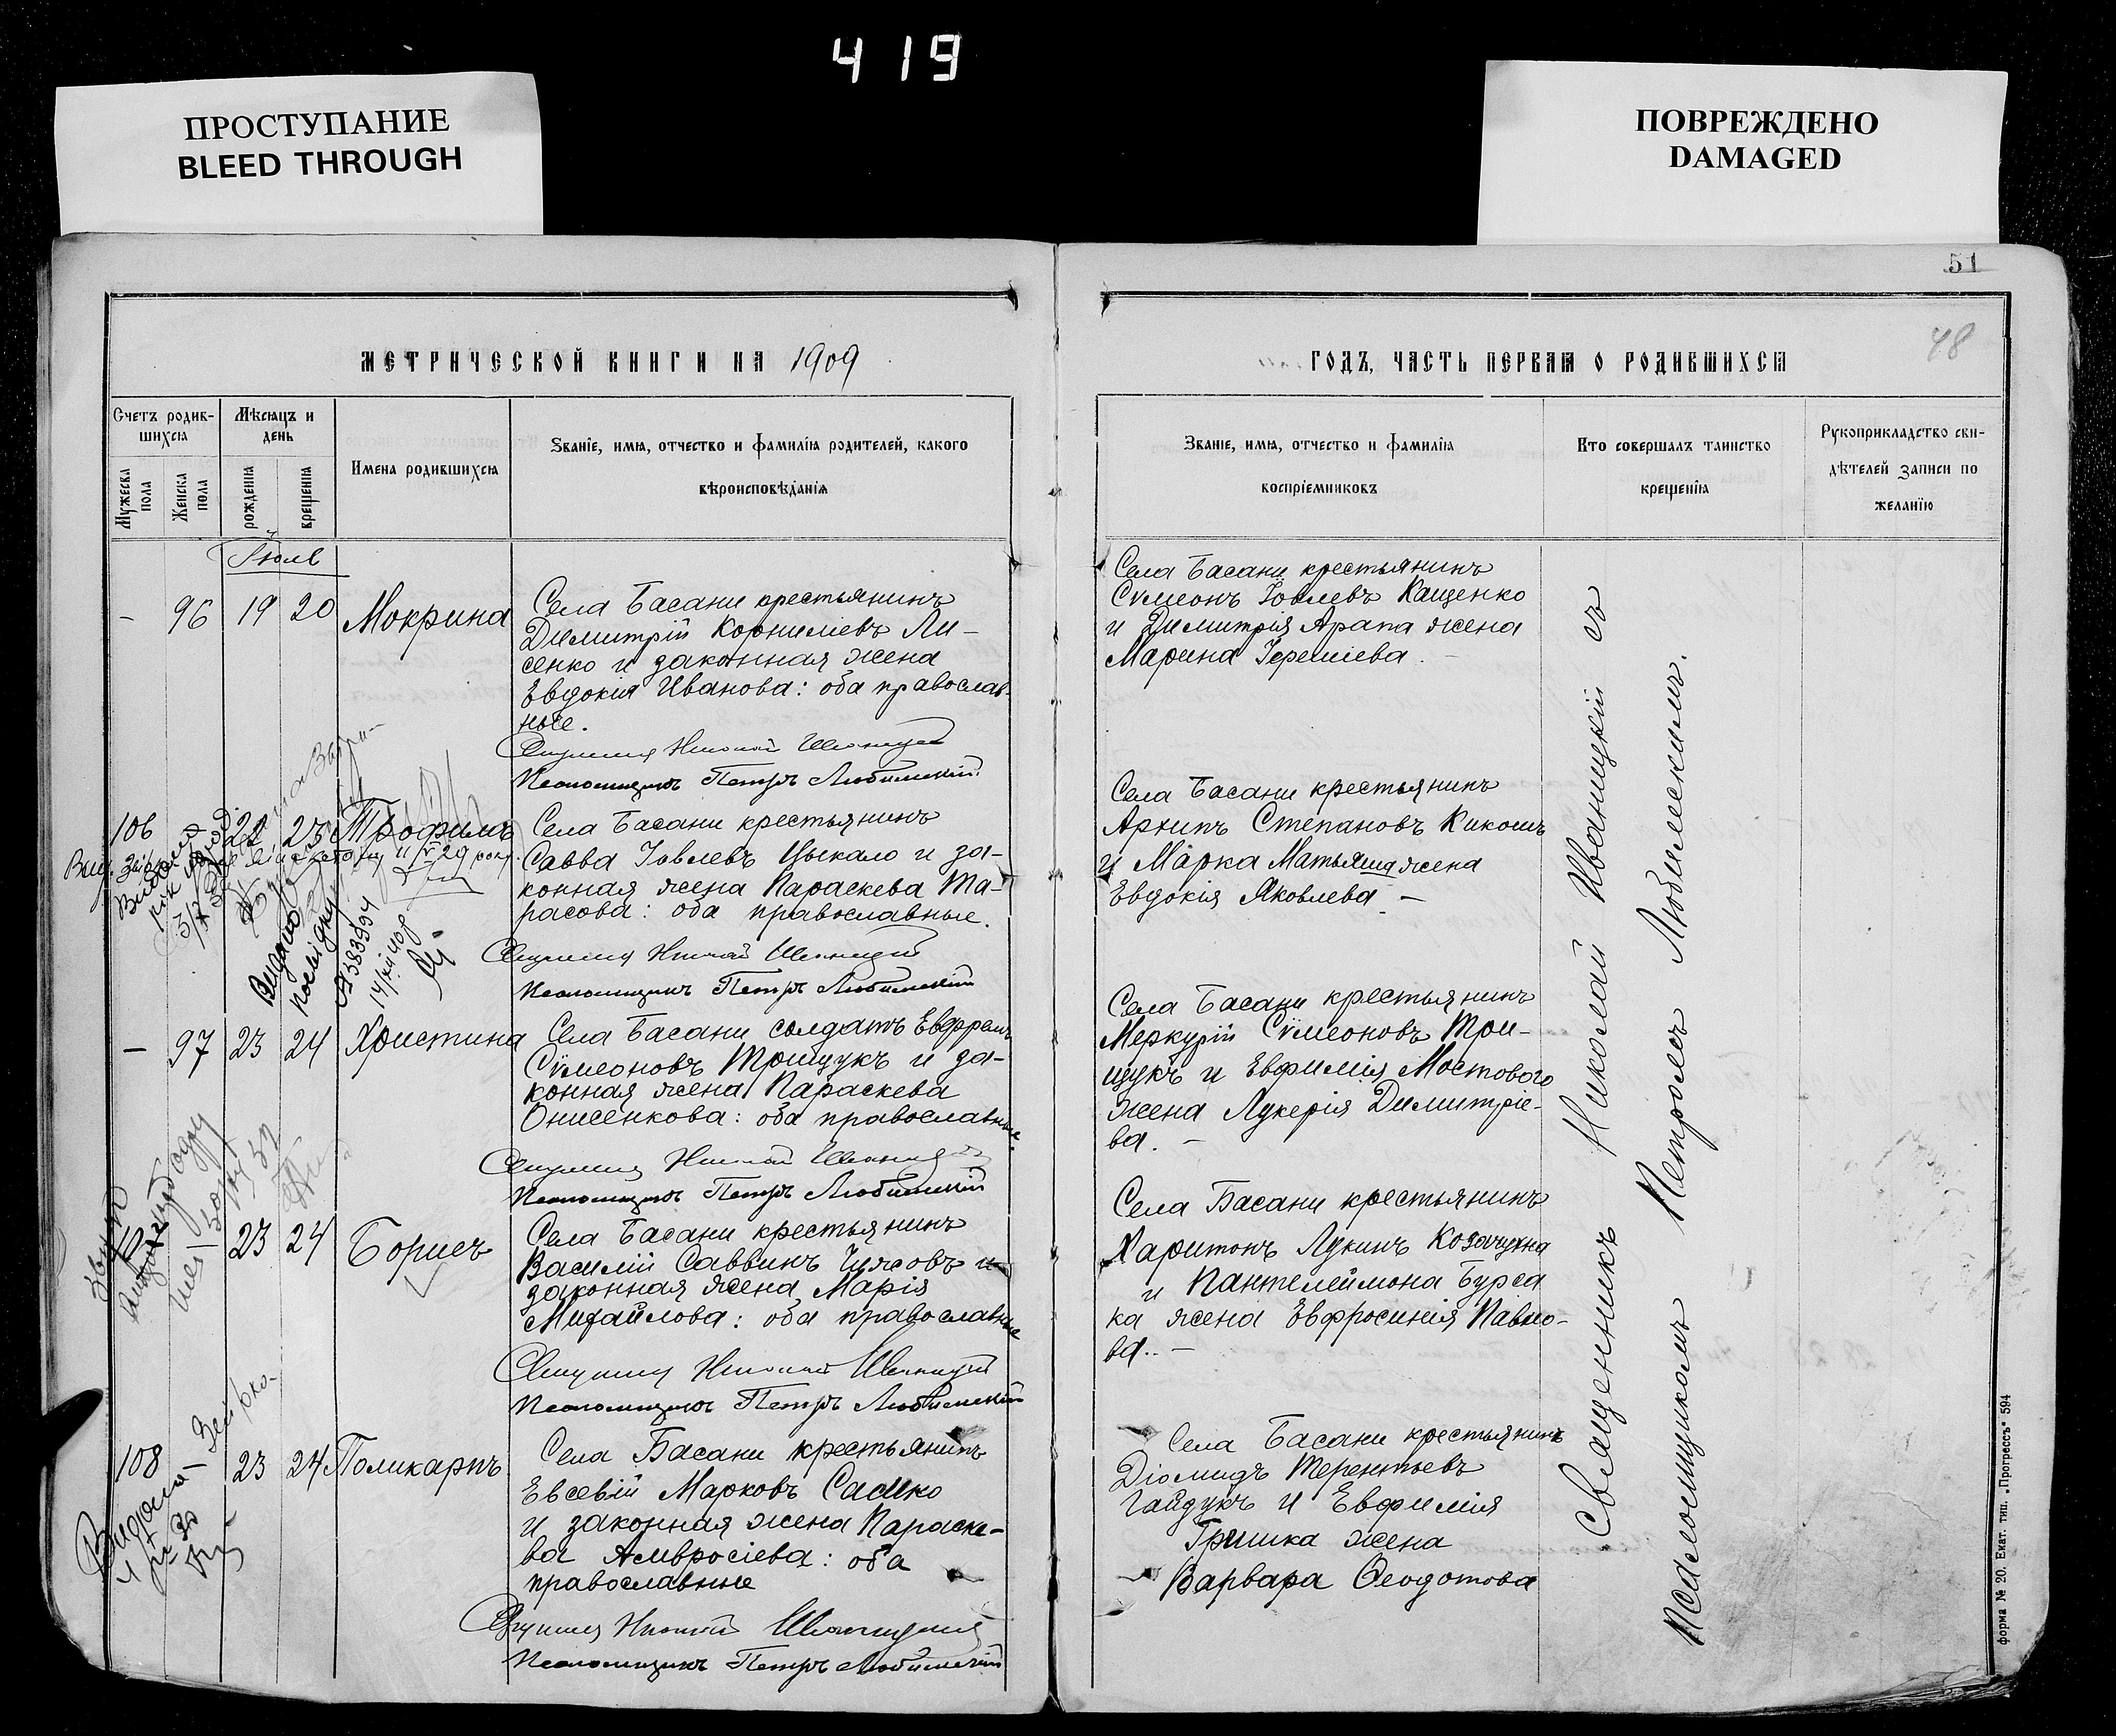 419
ПРОСТУПАНИЕ
BLEED THROUGH
ПОВРЕЖДЕНО
DAMAGED
51
48
МЕТРИЧЕСКОЙ КНИГИ НА 1909
ГОДЪ, ЧАСТЬ ПЕРВАЯ О РОДИВШИХСЯ
Счетъ родив-
шихся
Мужеска пола
Женска пола
Мѣсяцъ и
день
рожденія
крещенія
Имена родившихся
Званіе, имя, отчество и фамилія родителей, какого
вѣроисповѣданія
Званіе, имя, отчество и фамилія
воспріемниковъ
Кто совершалъ таинство
крещенія
Рукоприкладство сви-
дѣтелей записи по
желанію
Іюль
- 96 19 20 Мокрина
Села Басани крестьянинъ
Димитрій Корниліевъ Ли-
сенко и законная жена
Евдокія Иванова: оба православ-
ные.
Священникъ Николай Иваницкій
Псаломщикъ Петръ Любимскій
Села Басани крестьянинъ
Сѵмеонъ Іовлевъ Кащенко
и Димитрія Арапа жена
Марина Іереміева. -
106 22 23 Трофимъ
Села Басани крестьянинъ
Савва Іовлевъ Цыкало и за-
конная жена Параскева Та-
расова: оба православные.
Священникъ Николай Иваницкій
Псаломщикъ Петръ Любимскій
Видано
посвідку
А 383994
Села Басани крестьянинъ
Архипъ Степановъ Кикошъ
и Марка Матьяша жена
Евдокія Яковлева. -
- 97 23 24 Христина
Села Басани солдатъ Евфремъ
Сѵмеоновъ Трищукъ и за-
конная жена Параскева
Онисенкова: оба православные.
Священникъ Николай Иваницкій
Псаломщикъ Петръ Любимскій
Села Басани крестьянинъ
Меркурій Сѵмеоновъ Три-
щукъ и Евфимія Мостового
жена Лукерія Димитріе-
ва. -
23 24 Борисъ
Села Басани крестьянинъ
Василій Саввинъ Чужовъ и
законная жена Марія
Михайлова: оба православные
Священникъ Николай Иваницкій
Псаломщикъ Петръ Любимскій
Села Басани крестьянинъ
Харитонъ Лукинъ Козачухна
и Пантелеймона Бурса
ка жена Евфросинія Павло-
ва.. -
108 23 24 Поликарпъ
Села Басани крестьянинъ
Евсевій Марковъ Сасико
и законная жена Параске-
ва Амвросіева: оба
православные
Священникъ Николай Иваницкій
Псаломщикъ Петръ Любимскій
Села Басани крестьянинъ
Діомидъ Терентьевъ
Гайдукъ и Евфимія
Гришка жена
Варвара Ѳеодотова
Священникъ Николай Иваницкій съ
Псаломщикомъ Петромъ Любимскимъ.
форма № 20. Екат. тип. „Прогрессъ" 594